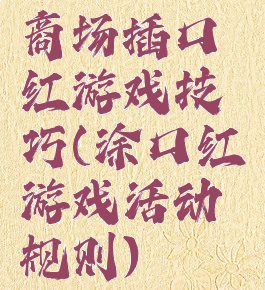 商场插口
红游戏技
巧(涂口红
游戏活动
规则)